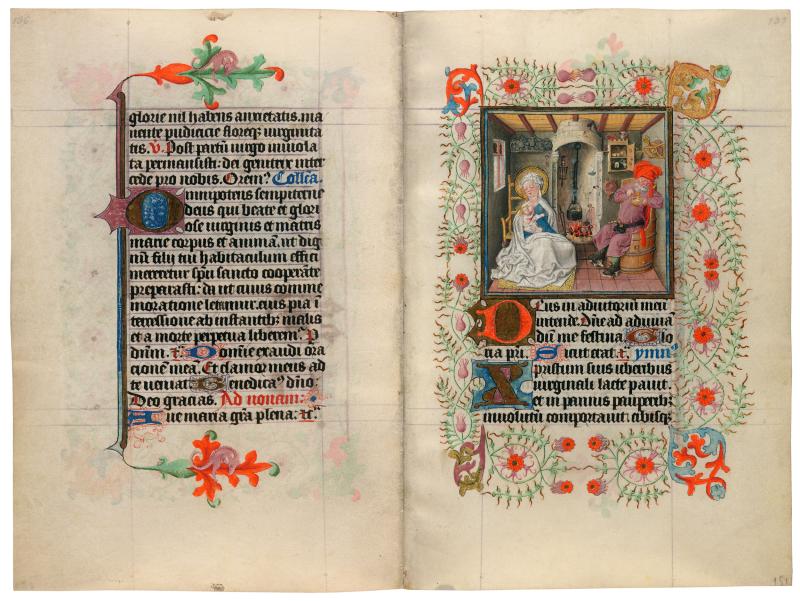 glorie nil habens anxietatis. ma
nente pudicicie floreqȝ uirginita
tis. V. Post partū uirgo inuiola
ta permansisti: dei genitrix inter
cede pro nobis. Orem9 Collca.
Omnipotens sempiterne
deus qui beate et glori
ose uirginis et matris
marie corpus et animā. ut dig
nū filij tui habitaculum effici
mereretur spū sancto cooperāte
preparasti: da ut cuius comme
moratione letamur. eius pia ī
tercessione ab instantibȝ malis
et a morte perpetua liberem9. P
dnūm. Domine exaudi ora
cionē meā. Et clamor meus ad
te ueniat Benedicam9 dn̄o.
Deo gracias. Ad nonam:
Aue maria grā plena:
Deus in adiutoriū meū
intende. Dn̄e ad adiuuā
dū me festina Glo
ria pri. Sicut erat ymn9
Xpristum suis uberibus
uirginali lacte pauit.
et in pannis pauperibȝ
inuolutū comportauit: cibisqȝ
151